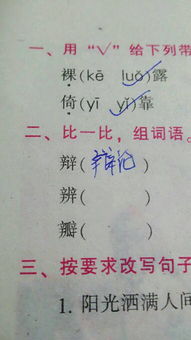 一、用“√”给下列带
裸(kē luǒ✓)露
倚(yī yǐ✓)靠
二、比一比,组词语。
辩(辩论)
辨( )
瓣( )
三、按要求改写句子
1. 阳光洒满人间